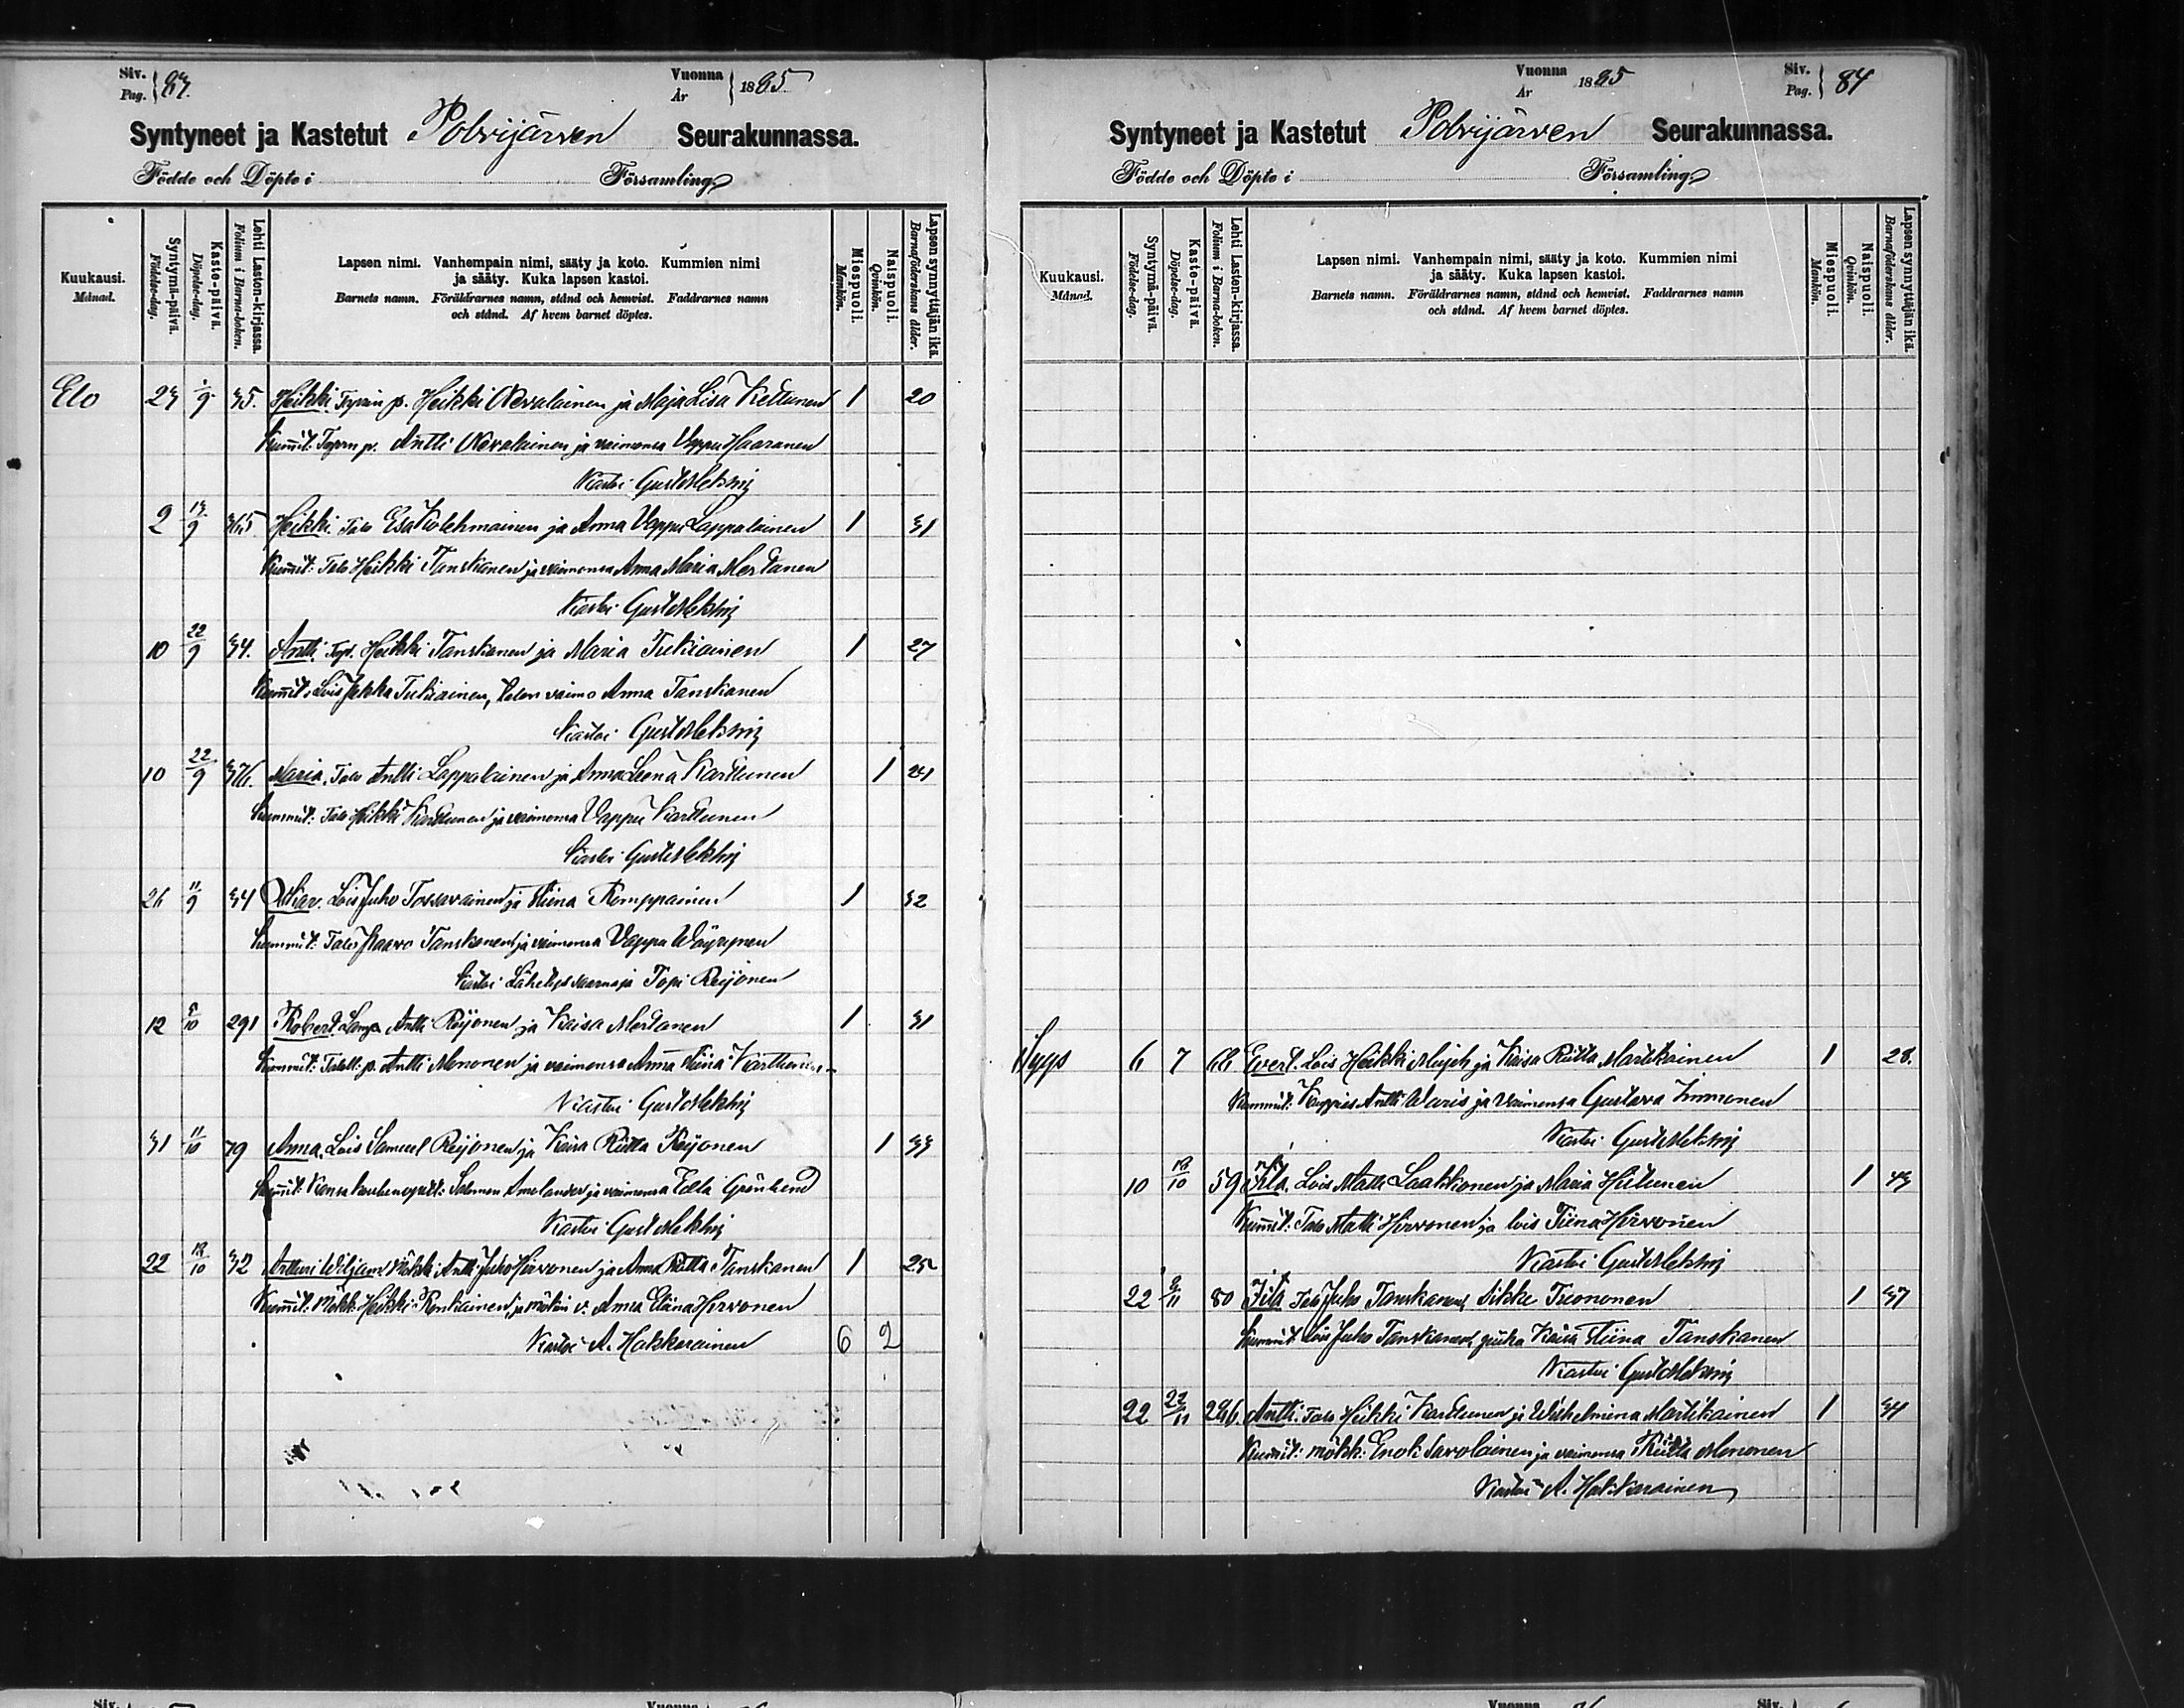 Siv.
Pag. 83.
Vuonna
År 1885
Syntyneet ja Kastetut Polvijärven Seurakunnassa.
Födde och Döpte i Församling
Kuukausi.
Månad.
Syntymä-päivä.
Födelse-dag.
Kaste-päivä.
Döpelse-dag.
Lehti Lasten-kirjassa.
Folium i Barna-boken.
Lapsen nimi. Vanhempain nimi, sääty ja koto. Kummien nimi
ja sääty. Kuka lapsen kastoi.
Barnets namn. Föräldrarnes namn, stånd och hemvist. Faddrarnes namn
och stånd. Af hvem barnet döptes.
Miespuoli.
Mankön.
Naispuoli.
Qvinkön.
Lapsen synnyttäjän ikä.
Barnaföderskans ålder.
Elo 23 1/9 35. Heikki p. Heikki Nevalainen ja Maja Lisa Kettunen 1 20
Kummit: p. Antti Nevalainen ja vaimonsa Vappu Haaranen
Kastoi Gust
2 13/9 Heikki. Talo Esa Kolehmainen ja Anna Vappu Lappalainen 1 31
Kummit: Talo Heikki Tanskanen ja vaimonsa Anna Maria Mertanen
Kastoi Gust
10 22/9 34. Antti. Heikki Tanskanen ja Maria Tukiainen 1 27
Kummit: Lois Pekka Tukiainen, talon vaimo Anna Tanskanen
Kastoi Gust
10 22/9 376. Maria. Talo Antti Lappalainen ja Anna Leena Karttunen 1 21
Kummit: Talo Heikki Karttunen ja vaimonsa Vappu Karttunen
Kastoi Gust
26 11/9 34 Oskar. Lois Juho Tossavainen ja Stiina Romppainen 1 32
Kummit: Talo Paavo Tanskanen ja vaimonsa Vappu Wäyrynen
Kastoi Lähetyssaarnaja Topi Reijonen
12 8/10 291 Robert. Antti Reijonen ja Kaisa Mertanen 1 31
Kummit: p. Antti Mononen ja vaimonsa Anna Stiina Karttunen
Kastoi Gust
31 11/10 79 Anna. Lois Samuel Reijonen ja Kaisa Riitta Reijonen 1 33
Kummit: Kansa Salomon Amelander ja vaimonsa Edla Grönlund
Kastoi Gust
22 18/10 32 Artturi Wiljam Mökki Antti Juho Hirvonen ja Anna Riitta Tanskanen 1 25
Kummit: Mökk. Heikki Rontiainen ja mökin v. Anna Stiina Hirvonen
Kastoi A. Hakkarainen 6 2
Vuonna
År 1885
Siv.
Pag. 84
Syntyneet ja Kastetut Polvijärven Seurakunnassa.
Födde och Döpte i Församling
Kuukausi.
Månad.
Syntymä-päivä.
Födelse-dag.
Kaste-päivä.
Döpelse-dag.
Lehti Lasten-kirjassa.
Folium i Barna-boken.
Lapsen nimi. Vanhempain nimi, sääty ja koto. Kummien nimi
ja sääty. Kuka lapsen kastoi.
Barnets namn. Föräldrarnes namn, stånd och hemvist. Faddrarnes namn
och stånd. Af hvem barnet döptes.
Miespuoli.
Mankön.
Naispuoli.
Qvinkön.
Lapsen synnyttäjän ikä.
Barnaföderskans ålder.
Syys 6 7 Evert. Lois Heikki ja Kaisa Riitta Martikainen 1 28.
Kummit: Antti Waris ja vaimonsa Gustava Immonen
Kastoi Gust
10 18/10 59 Lois Matti Laakkonen ja Maria Hiltunen 1 43
Kummit: Talo Matti Hirvonen ja lois Tiina Hirvonen
Kastoi Gust
22 80 Talo Juho Tanskanen, Sikke Turonen 1 37
Kummit: Lois Juho Tanskanen, piika Kaisa Stiina Tanskanen
Kastoi Gust
22 22/11 Antti. Talo Heikki Karttunen ja Wilhelmina Martikainen 1 34
Kummit: mökk. Enok Savolainen ja vaimonsa Riitta Mononen
Kastoi A. Hakkarainen
Siv.
Vuonna
Vuonna
Siv.